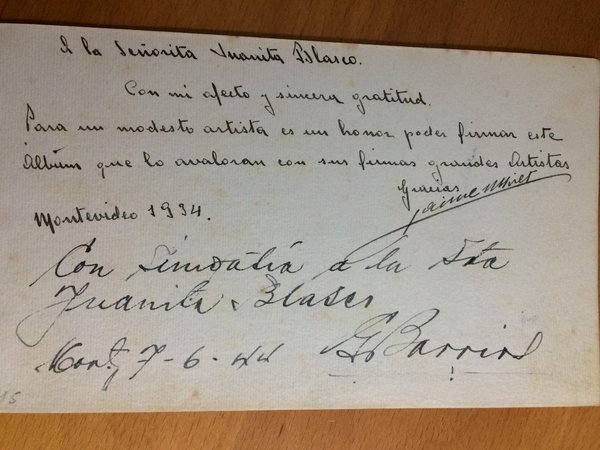 A la Señorita Juanita Blasco.
Con mi afecto y sincera gratitud.
Para un modesto artista es un honor poder firmar este
Álbum que lo avaloran con sus firmas grandes Artistas
Gracias
Jaime
Montevideo 1934.
Con simpatía a la Sta
Juanita Blasco
Mont. 7-6-44 Barrios
15